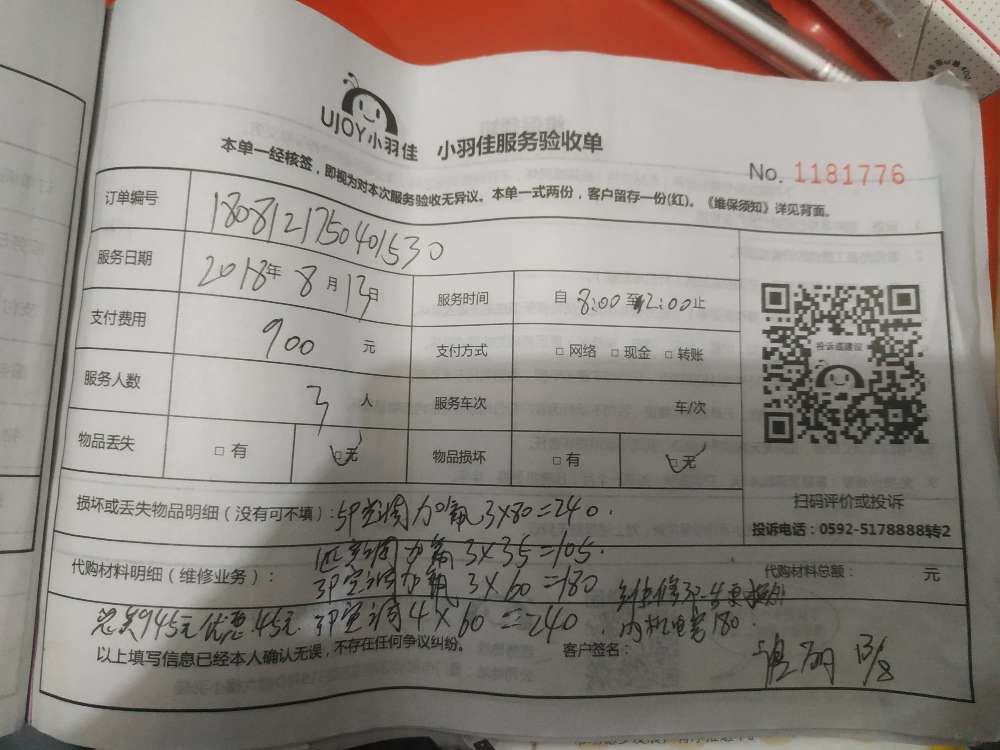 UJOY小羽佳 小羽佳服务验收单
No. 1181776
本单一经核签，即视为对本次服务验收无异议。本单一式两份，客户留存一份(红)。《维保须知》详见背面。
订单编号 1808121750401530
服务日期 2018年8月13日 服务时间 自8:00至12:00止
支付费用 900元 支付方式 □网络 □现金 □转账
服务人数 3人 服务车次 车/次
物品丢失 □有 □无 物品损坏 □有 □无
投诉或建议
扫码评价或投诉
投诉电话：0592-5178888转2
损坏或丢失物品明细（没有可不填）：5P空调加氟3×80=240.
空调加氟3×35=105.
代购材料明细（维修业务）： 3P空调加氟3×60=180 代购材料总额： 元
总共945元优惠45元. 3P空调4×60=240. 内机电容180.
以上填写信息已经本人确认无误，不存在任何争议纠纷。 客户签名： 13/8